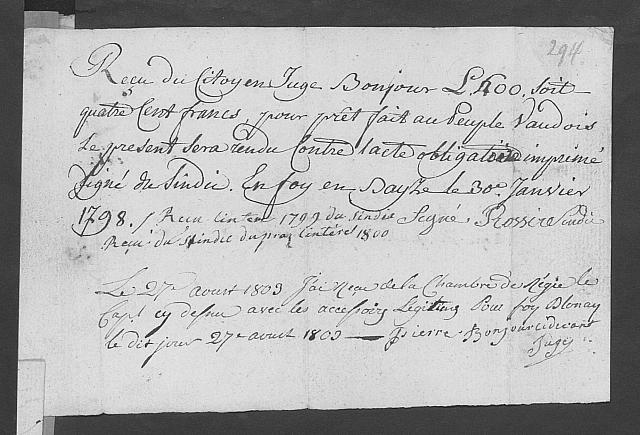 294
Recu du Citoyen Juge Bonjour L. 400. soit
quatre Cent francs, pour prêt fait au Peuple Vaudois
Le present sera rendu Contre l'acte obligatoire imprimé
Signé du Sindic. En foy en le 30e. Janvier
1798. / Recu 1799 du Sindic Segné. Rossier Sindic
Recu du Sindic du 1800
Le 27e aoust 1803 J'ai Recu de la Chambre de Régie le
Capl. cy dessus avec les accessoirs Légitims Pour foy Blonay
le dit jour 27e aoust 1803 — Pierre Bonjour cidevant
Juge